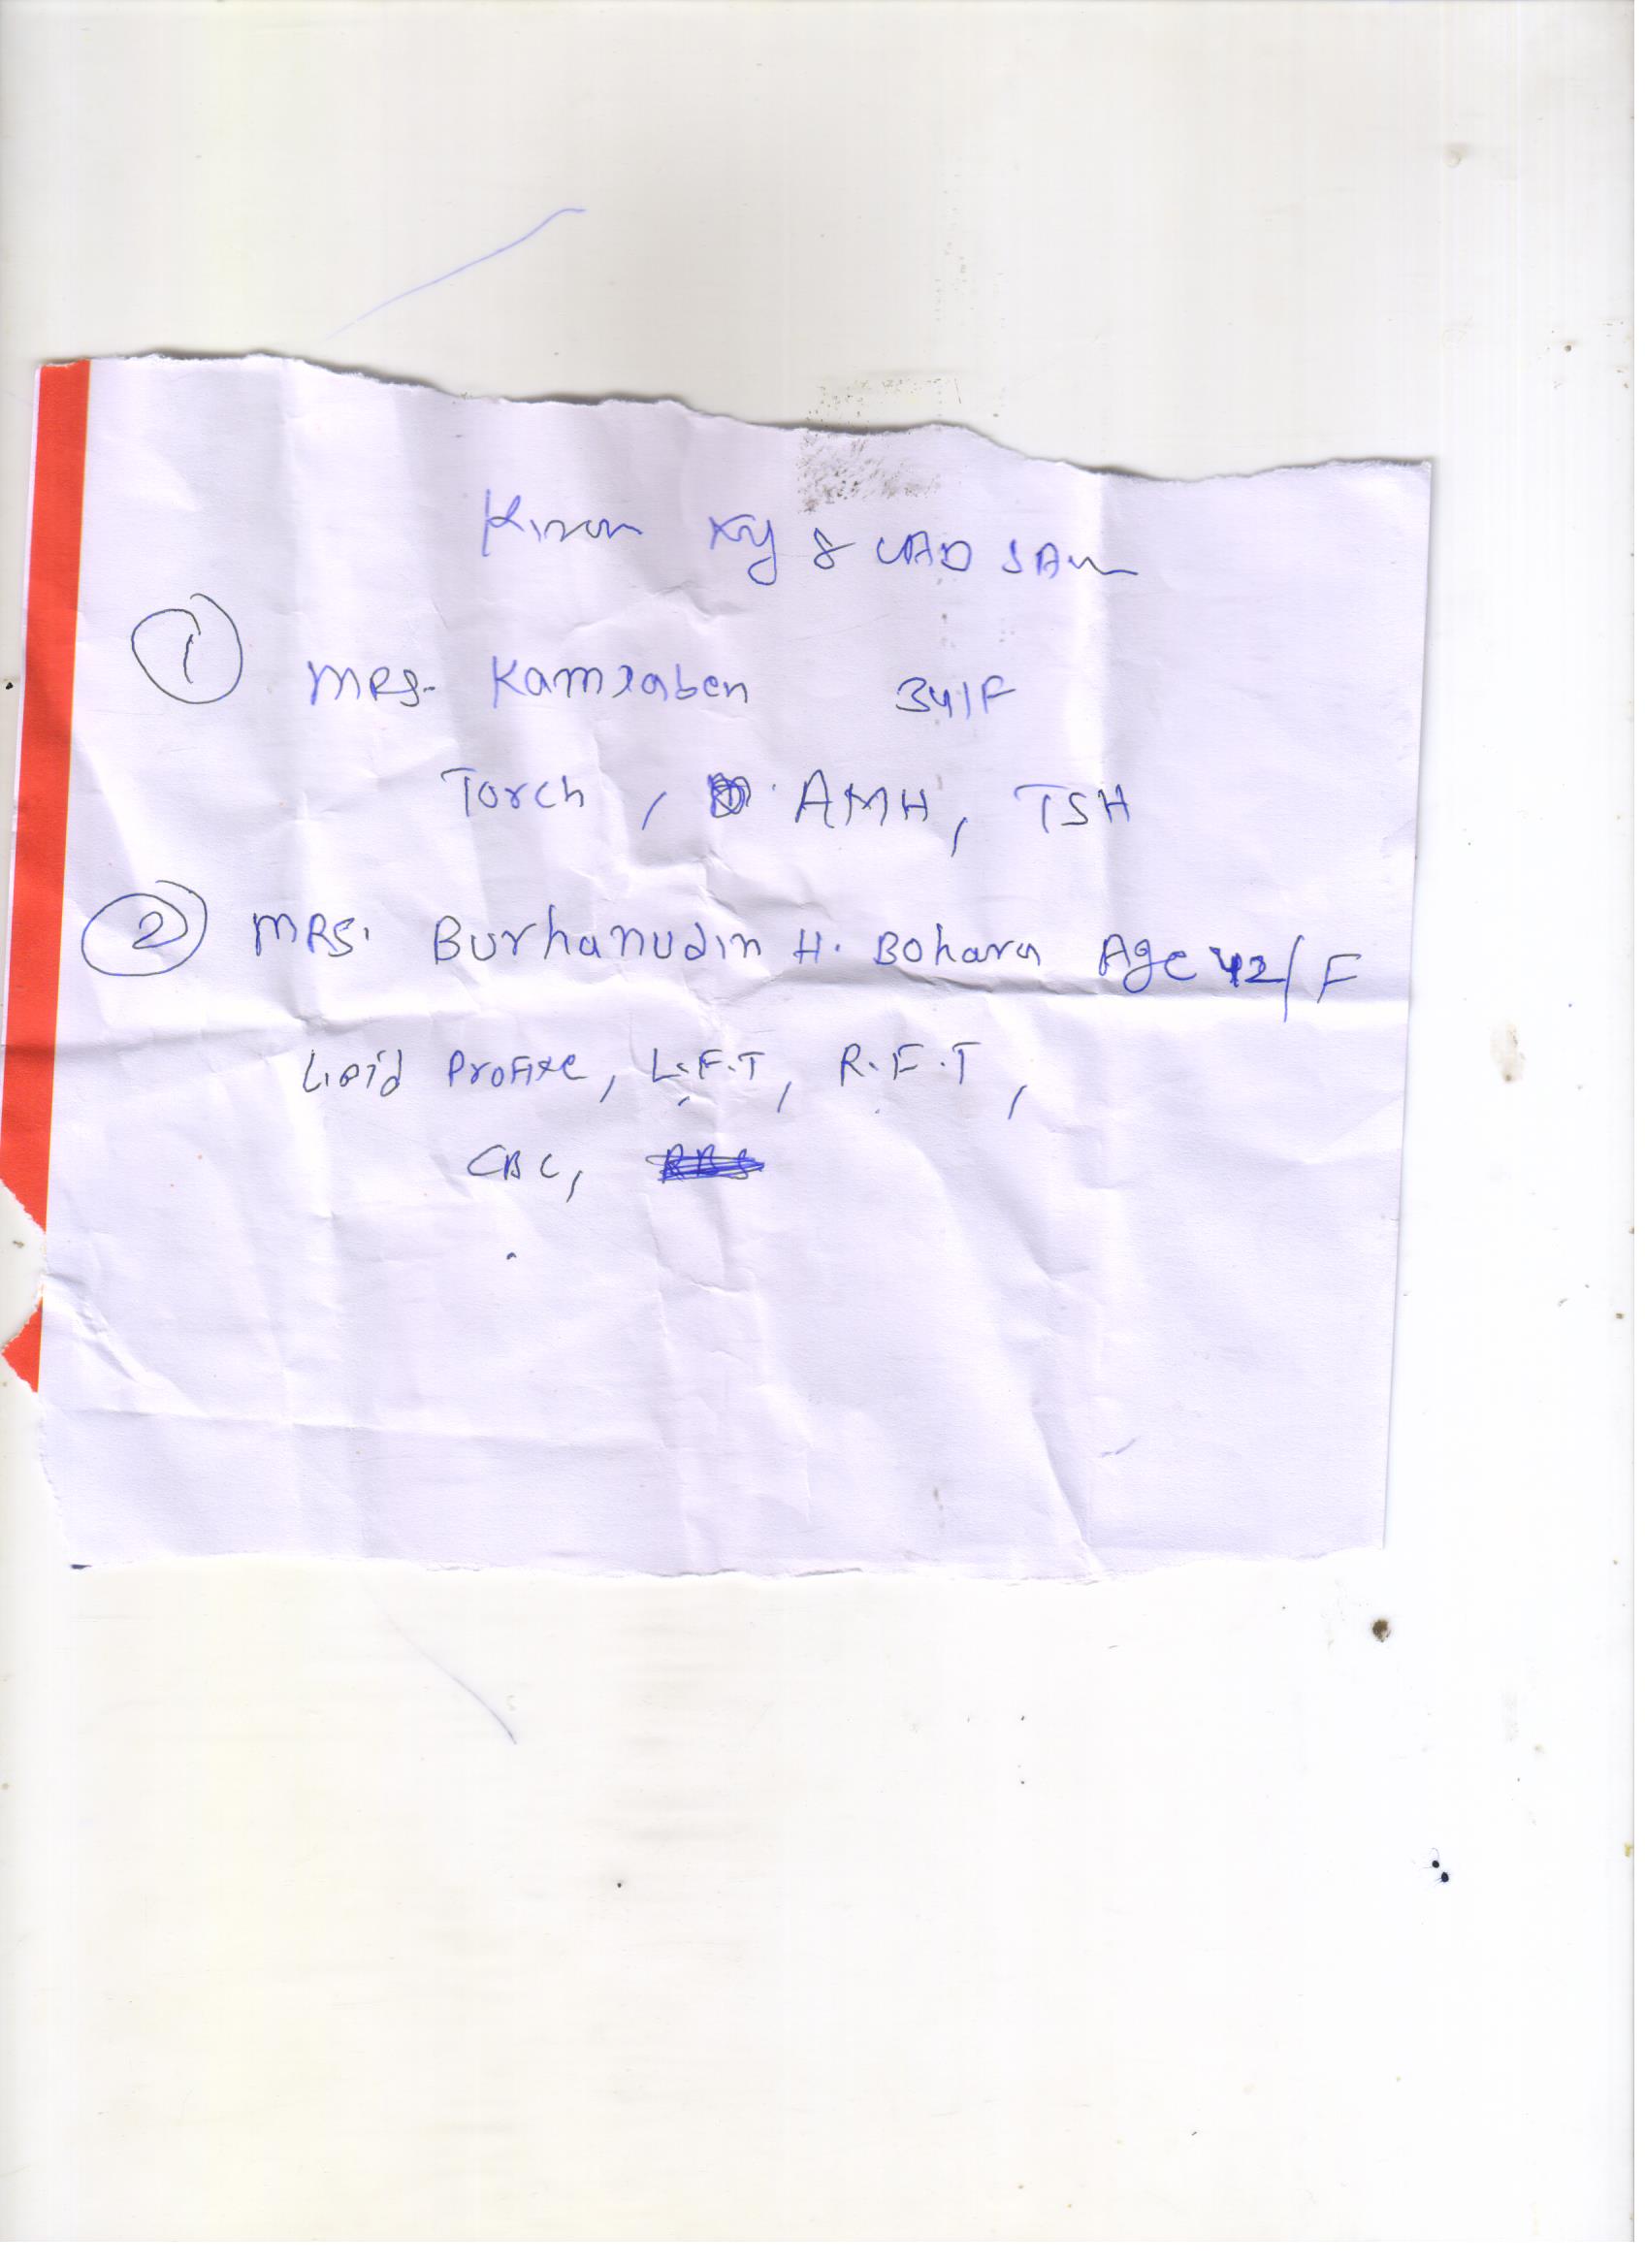 Kiran Xy & LAB SAM
①
MRS. Kamraben 34/F
Torch, AMH, TSH
② MRS. Burhanudin H. Bohara Age 42/F
Lipid Profile, L.F.T, R.F.T,
CBC, RBS